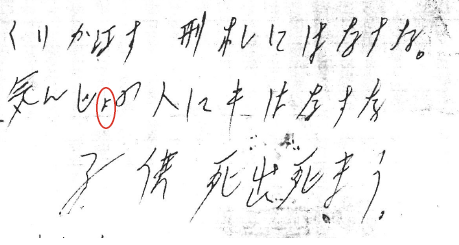 くりかえす 刑札にはなすな。
気んじょの人にもはなすな
子供死出死まう。